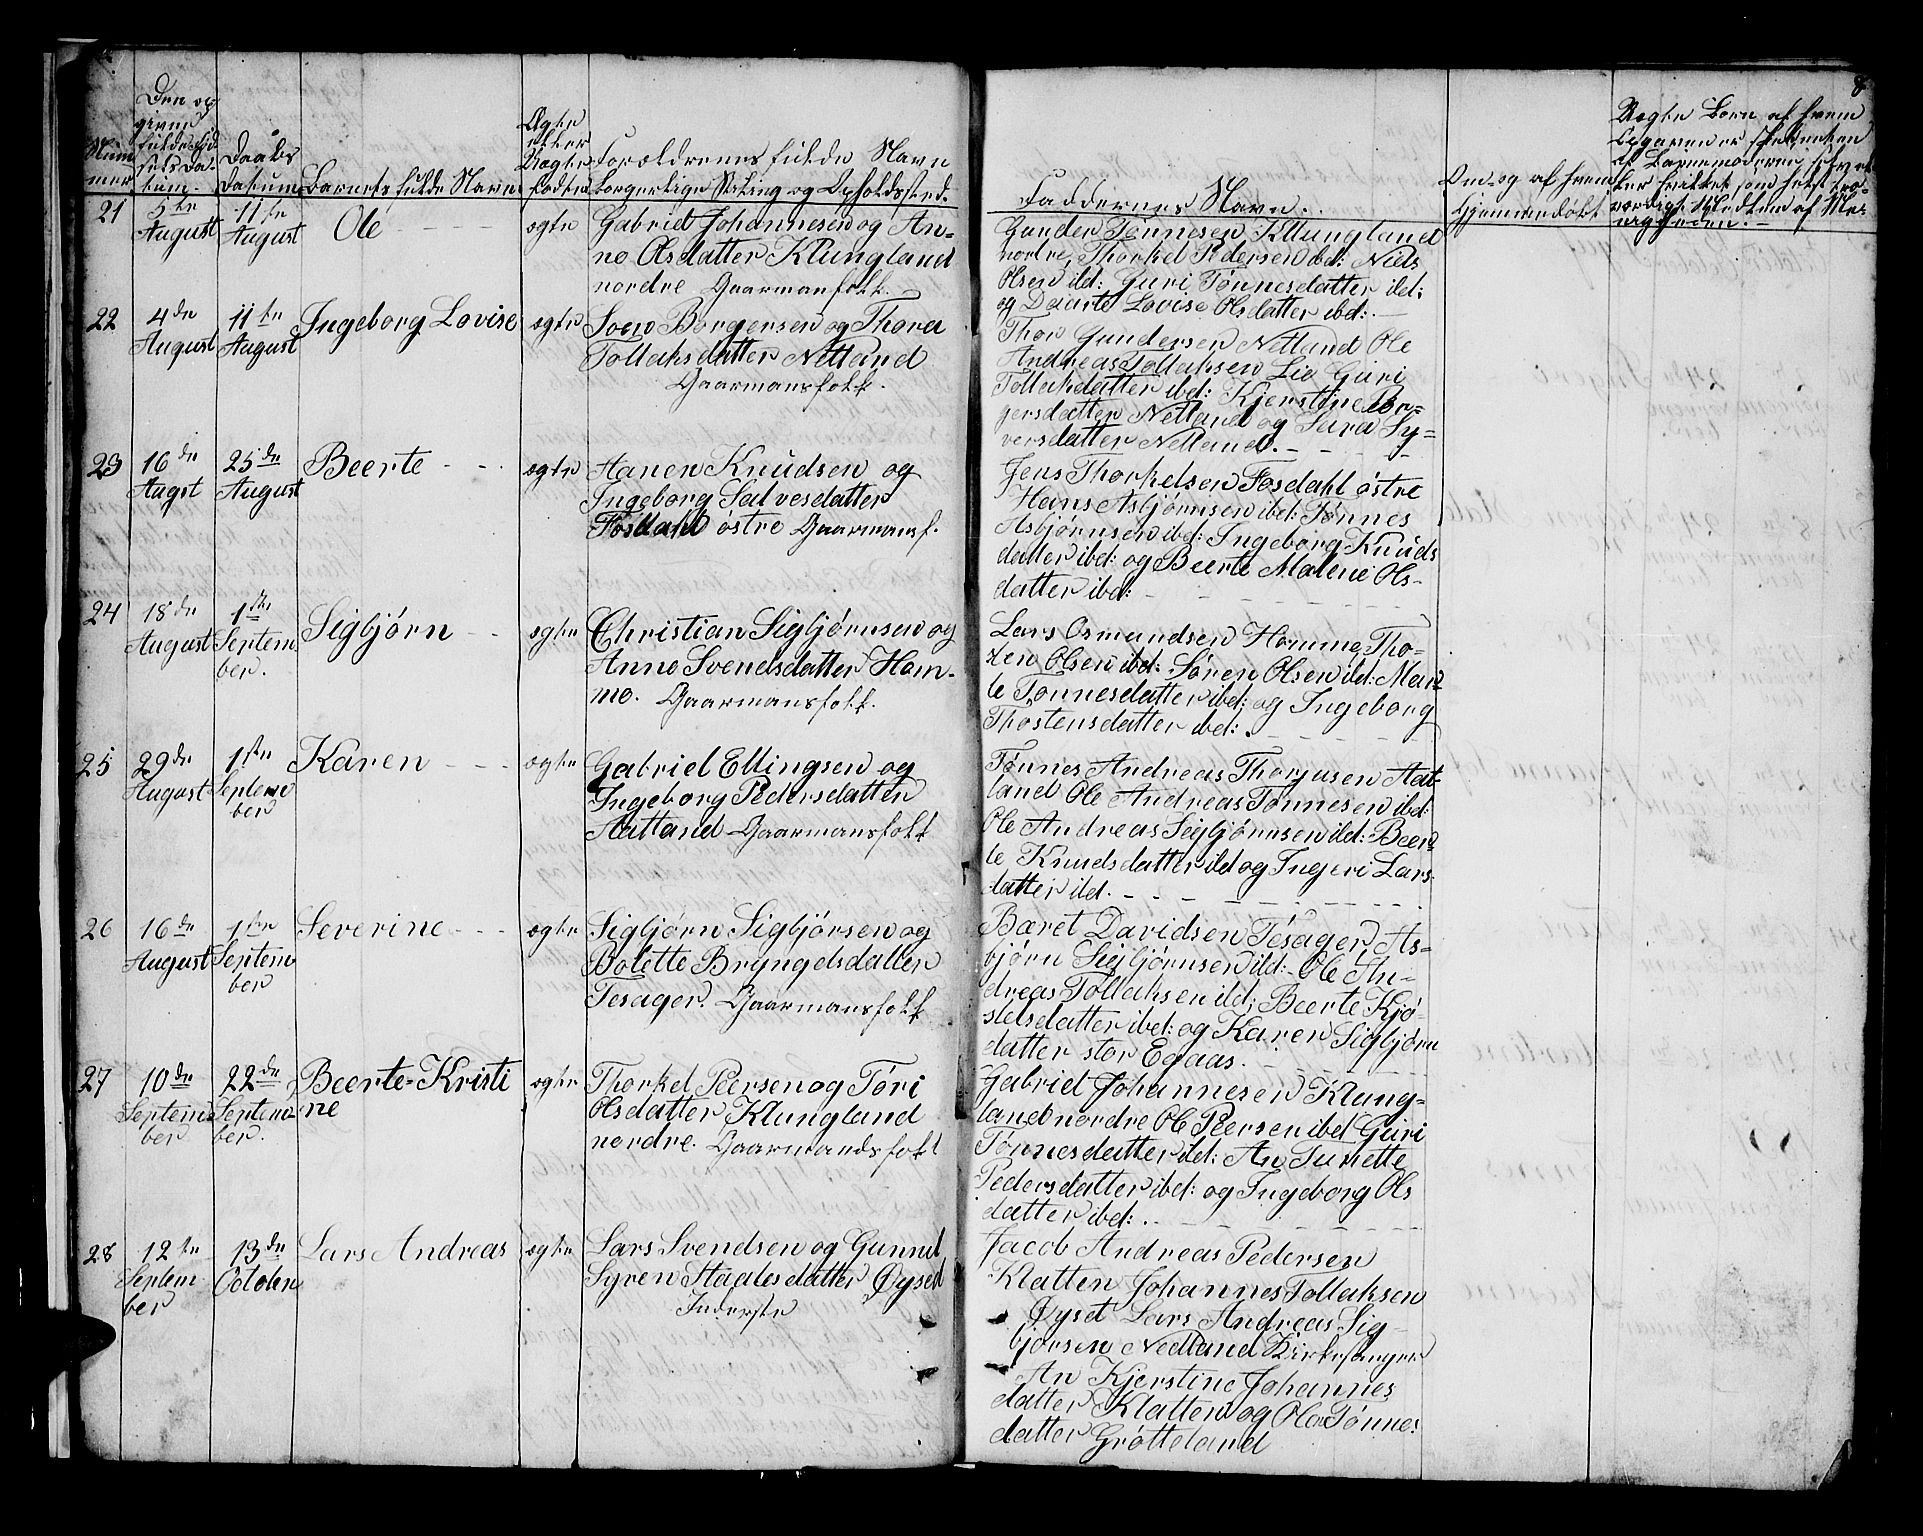 8
Num
mer
Den op
givne
fulde Fød
selsDa-
tum.
Daabs
Datum
Barnets fulde Navn
Ægte
eller
Uægte
fødte
Forældrenes fulde Navn
borgerlige Stiling og Opholdssted.
Faddernes Navn.
Om og af hvem
hjemmedøbt
Uægte Børn af hvem
21
5te
August
11te
August
Ole
ægte
Gabriel Johannesen og An=
ne Olsdatter Klungland
nordre Gaarmansfolk.
Gunder Tønnesen Klungland
nordre, Thorkel Pedersen ibd: Niels
Olsen ibd: Guri Tønnesdatter ibd:
og Daarte Lovise Olsdatter ibd:
22
4de
August
11te
August
Ingeborg Lovise
ægte
Sone Borgersen og Thora
Tollaksdatter Netland
Gaarmansfolk.
Thor Gundersen Netland Ole
Andreas Tollaksen Lie Guri
Tollakdatter ibd: Kjerstine Bør=
gersdatter Netland og Sara Sy=
versdatter Netland.
23
16de
Augst
25de
August
Beerte
ægte
Aanen Knudsen og
Ingeborg Salvesdatter
Fosdahl østre Gaarmansf.
Jens Thorkelsen Fosdahl østre
Hans Asbjørnsen ibd: Tønnes
Asbjørnsen ibd: Ingeborg Knuds
datter ibd: og Beerte Malene Ols-
datter ibd:
24
18de
August
1ste
Septem
ber.
Sigbjørn
ægte
Christian Sigbjørnsen og
Anne Svendsdatter Hom-
me. Gaarmansfolk.
Lars Osmundsen Homme, Tho-
sten Olsen ibd: Søren Olsen ibd: Mar=
te Tønnesdatter ibd: og Ingeborg
Thostensdatter ibd:
25
29de
August
1ste
Septem
ber
Karen
ægte
Gabriel Ellingsen og
Ingeborg Pedersdatter
Aatland Gaarmansfolk
Tønnes Andreas Thorjusen Aat
land Ole Andreas Tønnesen ibd:
Ole Andreas Sigbjørnsen ibd: Beer=
te Knudsdatter ibd og Ingeri Lars
datter ibd.
26
16de
August
1ste
Septem
ber
Severine
ægte
Sigbjørn Sigbjørsen og
Bolette Bryngelsdatter
Tesager. Gaarmansfolk
Baret Davidsen Tesager, As=
bjørn Sigbjørnsen ibd: Ole An=
dreas Tollaksen ibd: Beerte Kjø-
stelsdatter ibd: og Karen Sigbjørn
datter stor Egaas.
27
10de
Septem
ber
22de
Septem
ber.
Beerte=Kristi
ne
ægte
Thorkel Peersen og Tøri
Olsdatter Klungland
nordre. Gaarmandsfolk
Gabriel Johannesen Klung=
land nordre Ole Peersen ibd Guri
Tønnesdatter ibd: An Tunette
Pedersdatter ibd: og Ingeborg Ols
datter ibd:
28
12te
Septem
ber
13de
October
Lars Andreas
ægte
Lars Svendsen og Gunnel
Syren Staalesdatter Øysed
Inderste
Jacob Andreas Pedersen
Klatten Johannes Tollaksen
Øysed Lars Andreas Sig
bjørsen Nedland Kirkesanger
An Kjerstine Johannes
datter Klatten og Olen Tønnes
datter Grøtteland